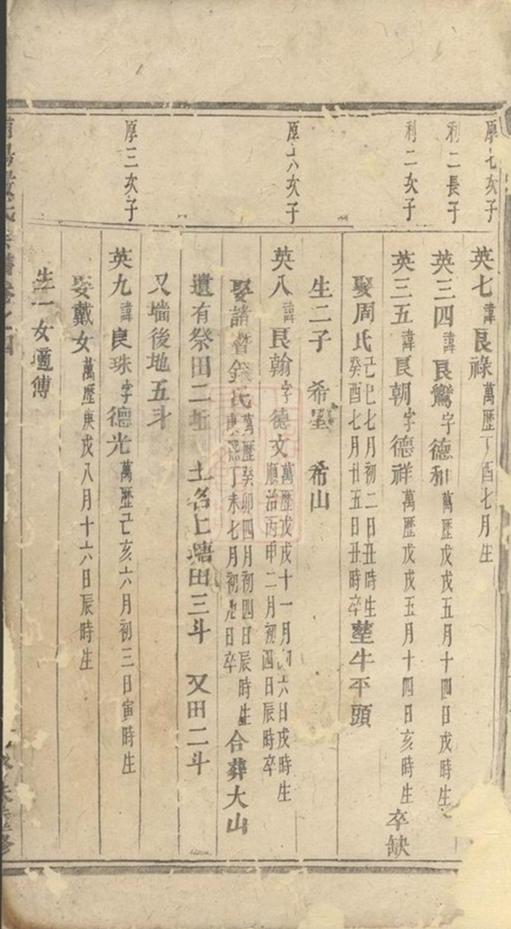 厚七次子
英七諱良祿萬歷丁酉七月生
利二長子
英三四諱良鸞字德和萬歷戊戌五月十四日戌時生
利二次子
英三五諱良朝字德祥萬歷戊戌五月十四日亥時生卒缺
娶周氏己巳七月初二日丑時生
癸酉七月廿五日丑時卒塟牛平頭
生二子 希聖 希山
厚六次子
英八諱良翰字德文萬歷戊戌十一月初六日戌時生
順治丙申二月初四日辰時卒
娶諸暨錢氏萬歷癸卯四月初四日辰時生
康熙丁未七月初九日卒
合葬大山
遺有祭田二坵 土名上塘田三斗 又田二斗
又墻後地五斗
厚三次子
英九諱良珠字德光萬歷己亥六月初三日寅時生
娶戴女萬歷庚戌八月十六日辰時生
生一女適傅